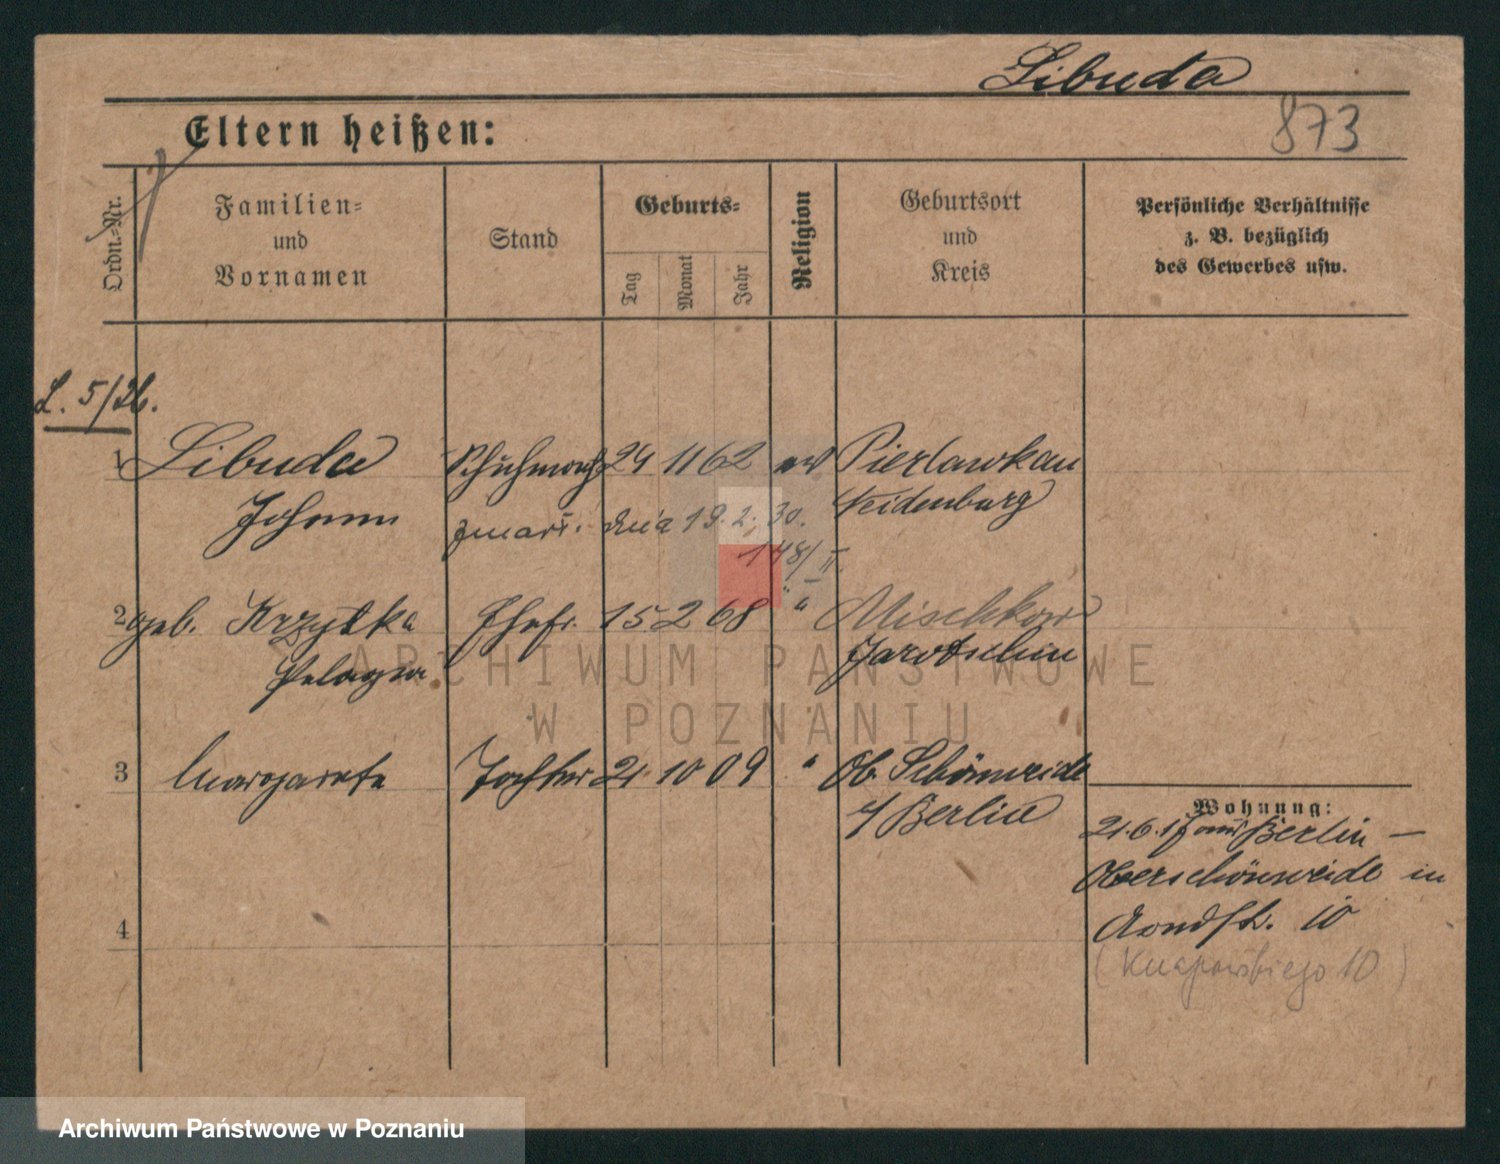 Libuda
873
Eltern heißen:
Ordn.=Nr.
Familien=
und
Vornamen
Stand
Geburts=
Tag
Monat
Jahr
Religion
Geburtsort
und
Kreis
Persönliche Verhältnisse
z. B. bezüglich
des Gewerbes usw.
L. 5/26.
1 Libuda Schuhmach 24 11 62 ev Pierlawkau
Johann
Neidenburg
zmarł. dnia 19.2.30.
148/II.
2 geb. Krzyżka Ehefr. 15 2 68 " Mischkow
Pelagia Jarotschin
3 Margareta Tochter 21 10 09 " Ob. Schönweide
b/ Berlin
Wohnung:
21.6.17 aus Berlin –
Oberschönweide in
str. 10
( Knapowskiego 10 )
4
ARCHIWUM PAŃSTWOWE
W POZNANIU
Archiwum Państwowe w Poznaniu